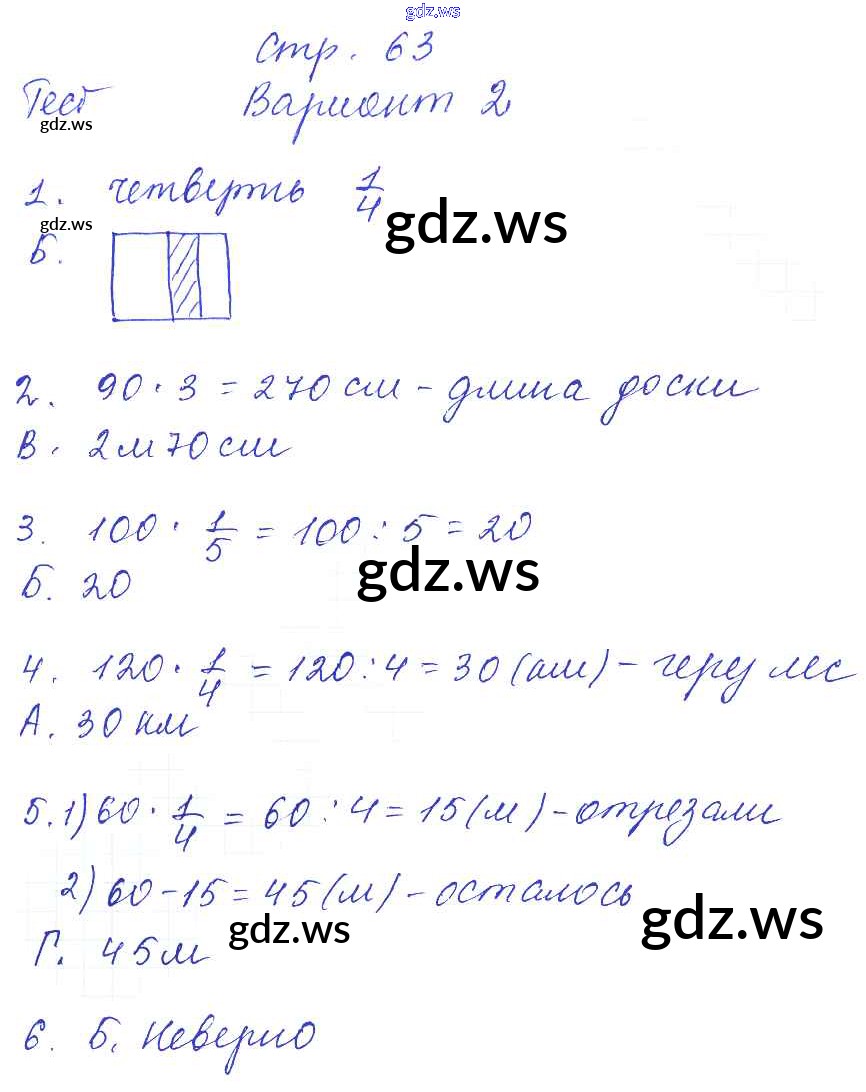 gdz.ws
Стр. 63
Тест Вариант 2
gdz.ws
1. четверть 1/4
gdz.ws gdz.ws
Б.
2. 90 · 3 = 270 см - длина доски
В. 2м 70 см
3. 100 · 1/5 = 100 : 5 = 20
gdz.ws
Б. 20
4. 120 · 1/4 = 120 : 4 = 30 (км) - через лес
А. 30 км
5. 1) 60 · 1/4 = 60 : 4 = 15 (м) - отрезали
2) 60 - 15 = 45 (м) - осталось
gdz.ws gdz.ws
Г. 45 м
6. Б. Неверно